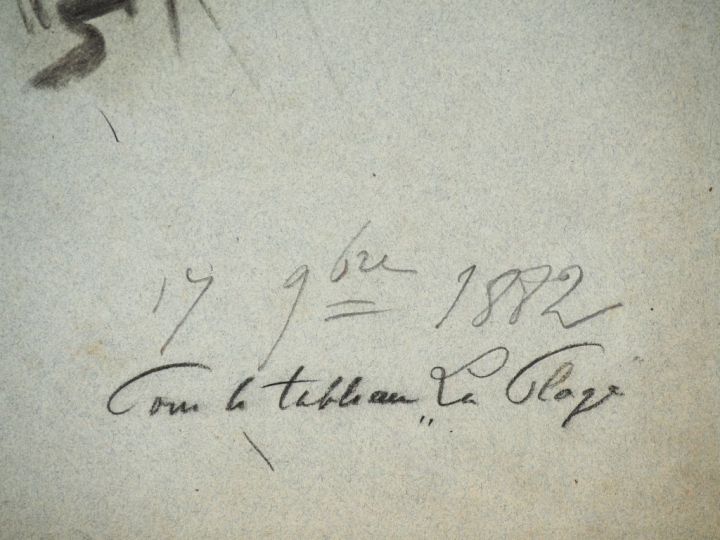 17 9bre 1882
Pour le tableau „La Plage"